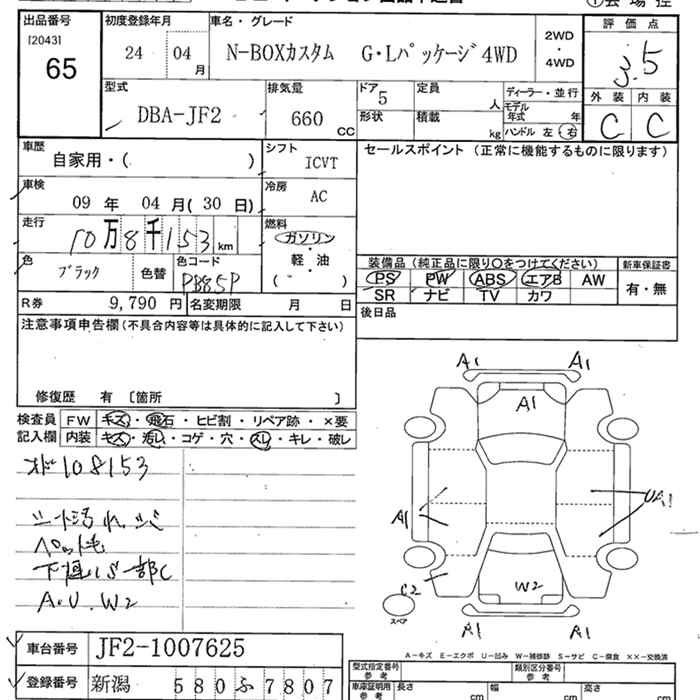 出品番号
[2043]
65
初度登録年月
24 04 月
車名・グレード
N-BOXカスタム G・Lパッケージ 4WD
2WD
・
4WD
評価点
3.5
外装 内装
C C
型式
DBA-JF2
排気量
660 CC
ドア 5
形状
定員 人
積載 kg
ディーラー・並行
モデル年式 年
ハンドル 左 右
車歴
自家用・( )
シフト
ICVT
セールスポイント(正常に機能するものに限ります)
車検
09 年 04 月(30 日)
冷房
AC
走行
10万8千153 km
燃料
ガソリン
軽・油
( )
色
ブラック
色替
色コード
PB85P
装備品(純正品に限り〇をつけてください)
新車保証書
PS PW ABS エアB AW
SR ナビ TV カワ
有・無
R券 9,790 円
名変期限 月 日
後日品
注意事項申告欄(不具合内容等は具体的に記入して下さい)
修復歴 有 [箇所 ]
検査員
記入欄
FW キズ・飛石・ヒビ割・リペア跡・×要
内装 キズ・汚れ・コゲ・穴・スレ・キレ・破レ
108153
下廻りS一部C
A.U.W2
A1 A1
A1
A1
UA1
C2
スペア
W2
A1 A1
A-キズ E-エクボ U-凹み W-補修跡 S-サビ C-腐食 ××-交換済
車台番号 JF2-1007625
登録番号 新潟 580ふ7807
型式指定番号
参考
類別区分番号
参考
車庫証明用
参考
長さ cm
幅 cm
高さ cm